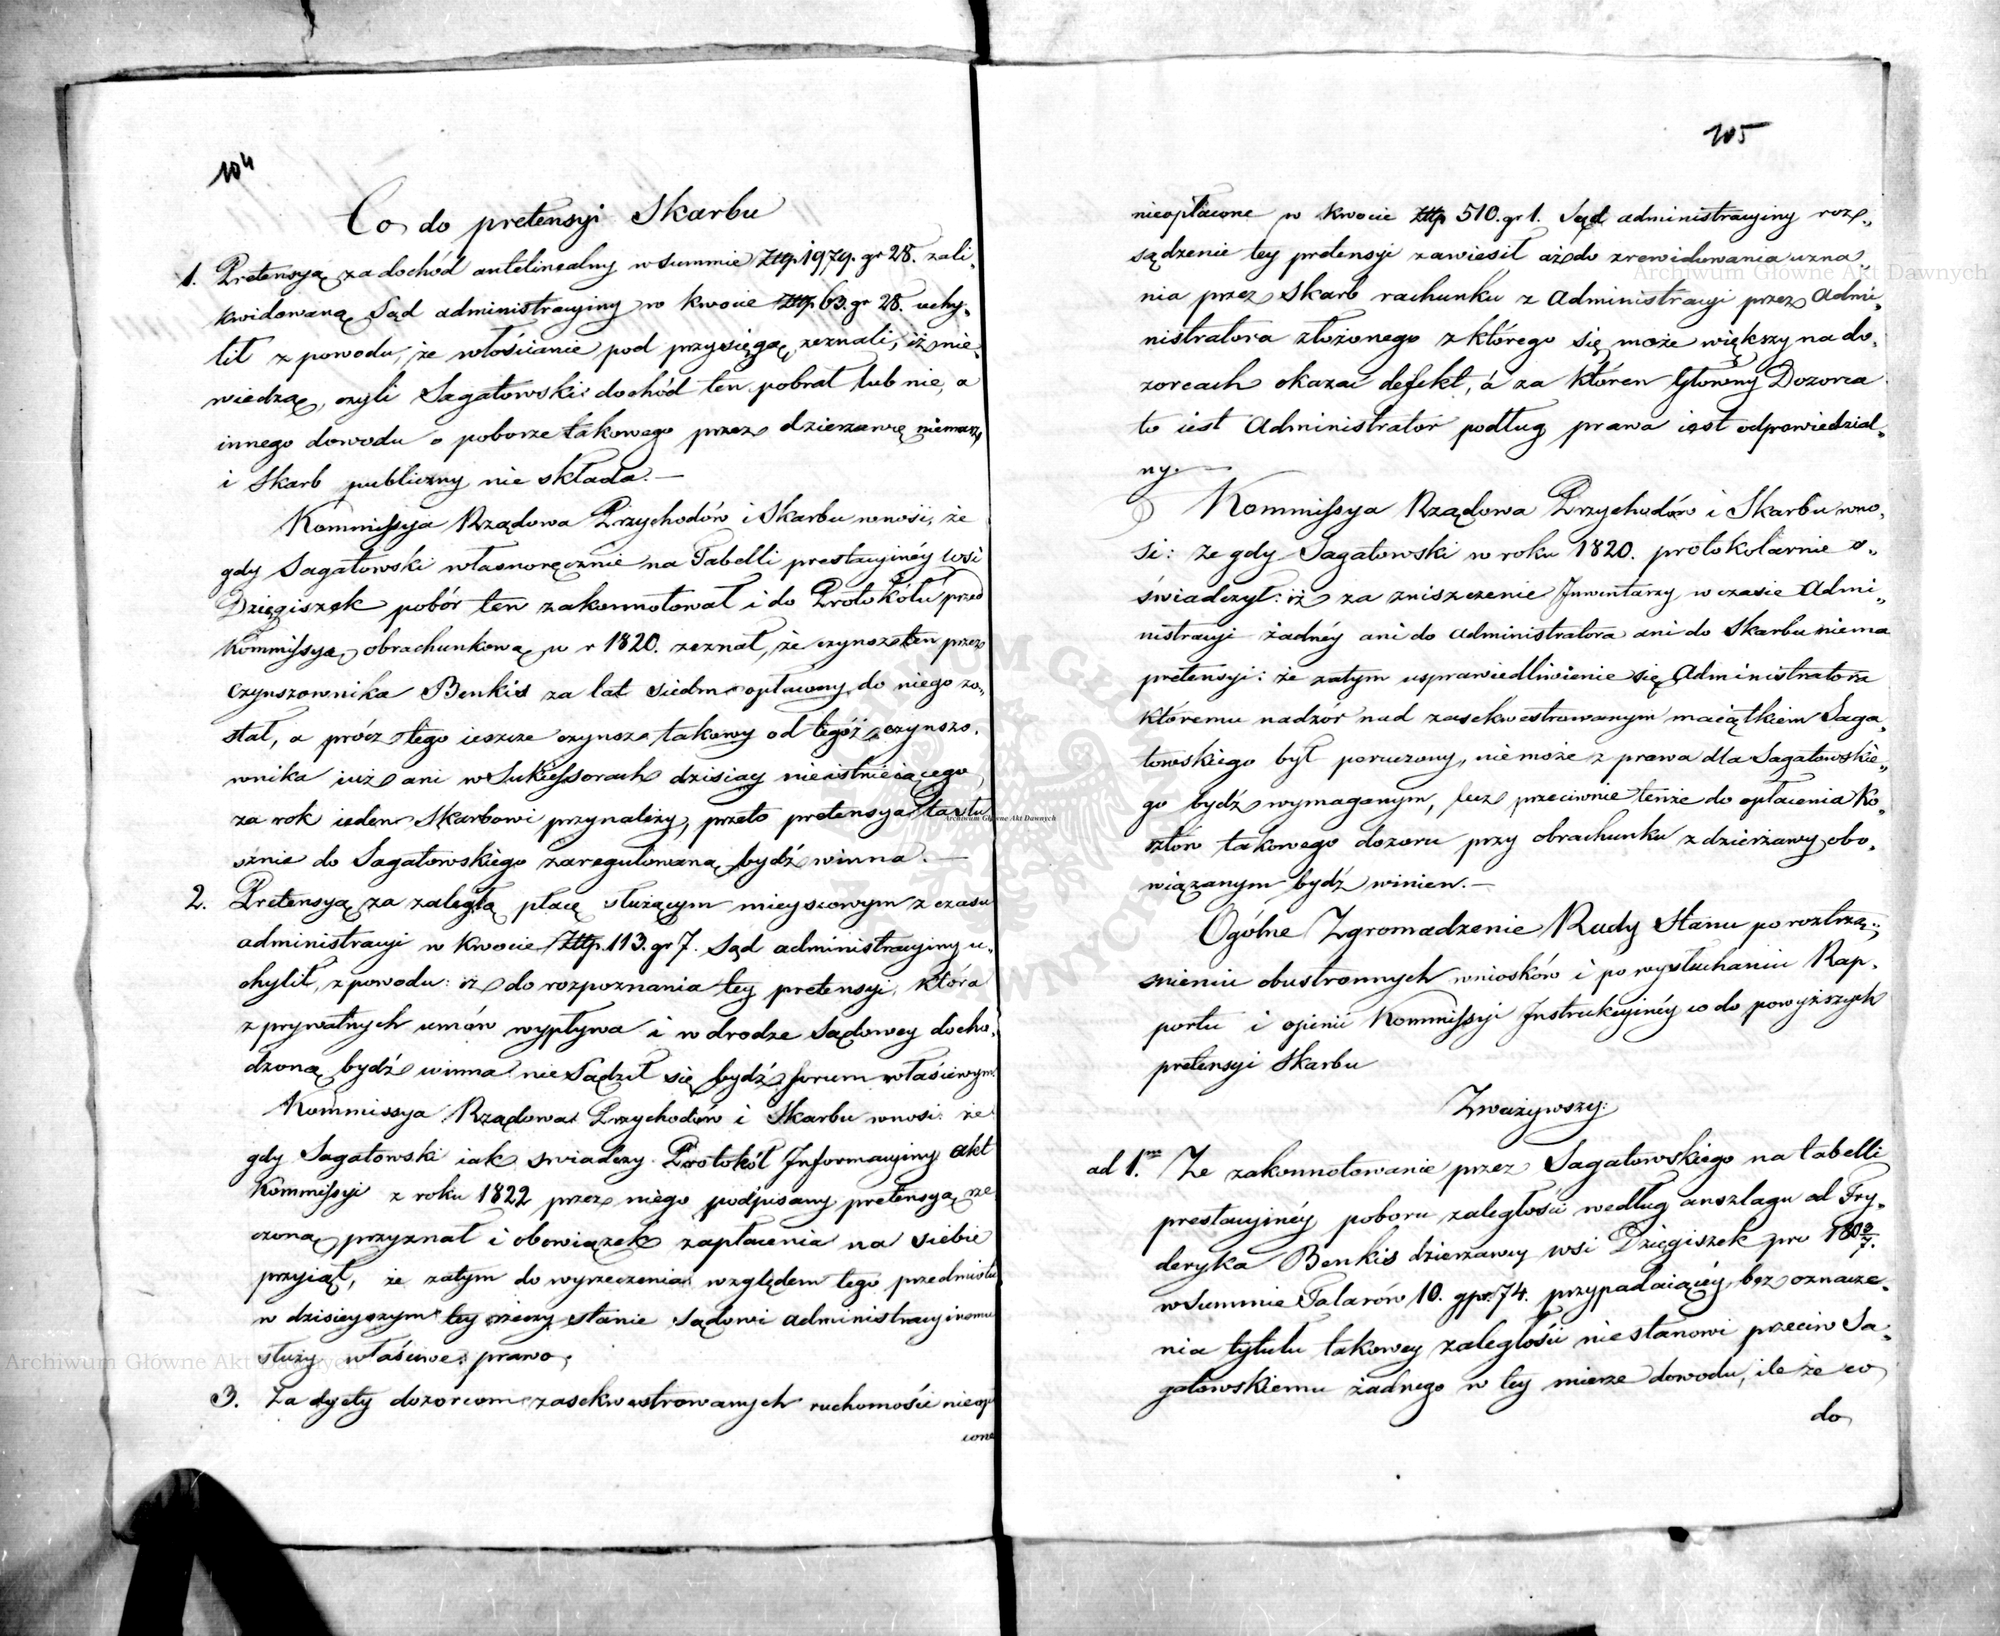 104
Co do pretensyi Skarbu
1. Pretensyą za dochód antelinealny w summie Złłp. 1979. gr 28. zali„
kwidowaną Sąd administracyiny w kwocie Złłp. 63. gr 28. uchy„
lił z powodu, że włościanie pod przysięgą zeznali, iż nie„
wiedzą, czyli Sagatowski dochód ten pobrał lub nie, a
innego dowodu o poborze takowego przez dzierzawcę niemasz,
i Skarb publiczny nie składa. —
Kommissya Rządowa Przychodów i Skarbu wnosi, że
gdy Sagatowski własnoręcznie na Tabelli prestacyinéy wsi
Dzięgiszek pobór ten zakonnotował i do Protokółu przed
Kommissyą obrachunkową w r 1820. zeznał, że czynsz ten przez
Czynszownika Benkis za lat siedm opłacony do niego zo„
stał, a prócz tego ieszcze czynsz takowy od tegóż czynszo„
wnika iuż ani w Sukcessorach dzisiay nieistnieiącego
za rok ieden Skarbowi przynależy, przeto pretensya ta słu
sznie do Sagatowskiego zaregulowaną bydź winna. —
2. Pretensyą za zaległą płacę służącym mieyscowym z czasu
administracyi w kwocie Złłp. 113. gr 7. Sąd administracyiny u„
chylił, z powodu: iż do rozpoznania tey pretensyi, która
z prywatnych umów wypływa i w drodze Sądowey docho„
dzoną bydź winna nie Sądził się bydź forum właściwym.
Kommissya Rządowa Przychodów i Skarbu wnosi: że
gdy Sagatowski iak swiadczy Protokół Informacyiny akt
Kommissyi z roku 1822 przez niego podpisany pretensyą rze
czoną przyznał i obowiązek zapłacenia na siebie
przyiął, że zatym do wyrzeczenia względem tego przedmiotu
w dzisieyszym tey rzeczy stanie Sądowi administracyinemu
służy właściwe prawo;
3. Za dyety dozorcom zasekwestrowanych ruchomości nieopł
cone
105
nieopłacone w kwocie Złłp 510. gr 1. Sąd administracyiny roz„
sądzenie tey pretensyi zawiesił aż do zrewidowania uzna„
nia przez Skarb rachunku z Administracyi przez Admi„
nistratora złożonego z którego się może większy na do„
zorcach okazać defekt, á za któren Główny Dozorca
to iest Administrator podług prawa iest odpowiedzial„
ny. —
Kommissya Rządowa Przychodów i Skarbu wno„
si: że gdy Sagatowski w roku 1820. protokolarnie o„
świadczył: iż za zniszczenie Inwentarzy w czasie Admi„
nistracyi żadnéy ani do administratora ani do Skarbu niema
pretensyi: że zatym usprawiedliwienie się Administratora
któremu nadzór nad zasekwestrowanym maiątkiem Saga„
towskiego był poruczony, nie może z prawa dla Sagatowskie„
go bydź wymaganym, lecz przeciwnie tenże do opłacenia Ko„
sztów takowego dozoru przy obrachunku z dzierżawy obo„
wiązanym bydź winien. —
Ogólne Zgromadzenie Rady Stanu po roztrzą„
śnieniu obustronnych wniosków i po wysłuchaniu Rap„
portu i opinii Kommissyi Instrukcyinéy co do powyższych
pretensyi Skarbu
Zważywszy:
ad 1.mo Że zakonnotowanie przez Sagatowskiego na tabelli
prestacyinéy poboru zaległości według anszlagu od Fry„
deryka Benkis dzierzawcy wsi Dzięgiszek pro 180 6/7.
w Summie Talarów 10. gpr. 74. przypadaiącéy, bez oznacze„
nia tytułu takowey zaległości nie stanowi przeciw Sa„
gatowskiemu żadnego w tey mierze dowodu, ile że co
do